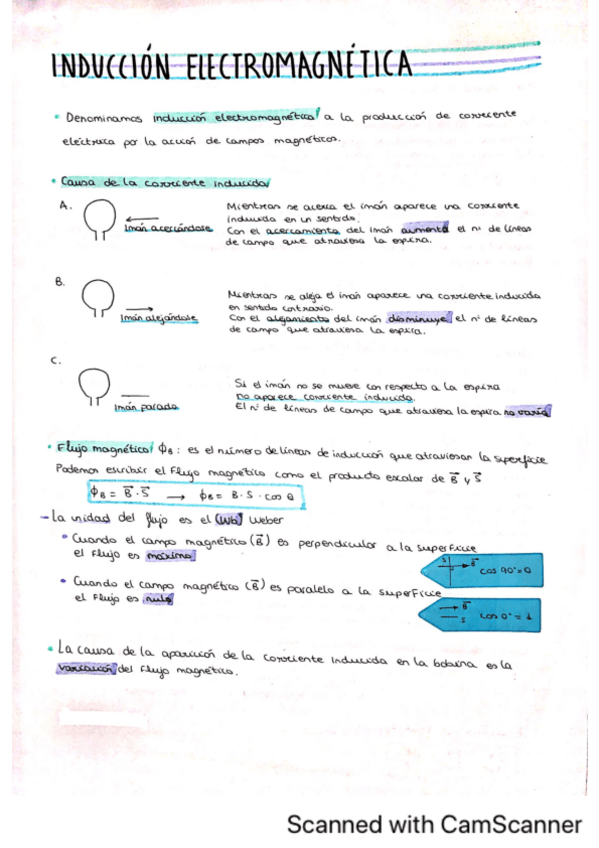 INDUCCIÓN ELECTROMAGNÉTICA
• Denominamos inducción electromagnética a la producción de corriente
eléctrica por la acción de campos magnéticos.
• Causa de la corriente inducida
A.
Imán acercándose
Mientras se acerca el imán aparece una corriente
inducida en un sentido.
Con el acercamiento del imán aumenta el nº de líneas
de campo que atraviesa la espira.
B.
Imán alejándose
Mientras se aleja el imán aparece una corriente inducida
en sentido contrario.
Con el alejamiento del imán disminuye el nº de líneas
de campo que atraviesa la espira.
C.
Imán parado
Si el imán no se mueve con respecto a la espira
no aparece corriente inducida.
El nº de líneas de campo que atraviesa la espira no varía
• Flujo magnético ΦB: es el número de líneas de inducción que atraviesan la superficie
Podemos escribir el Flujo magnético como el producto escalar de B⃗ y S⃗
ΦB = B⃗ · S⃗ → ΦB = B · S · cos θ
- La unidad del flujo es el (Wb) Weber
• Cuando el campo magnético (B⃗) es perpendicular a la superficie
el Flujo es máximo
S B⃗ cos 90° = 0
• Cuando el campo magnético (B⃗) es paralelo a la superficie
el Flujo es nulo
B⃗ S cos 0° = 1
• La causa de la aparición de la corriente inducida en la bobina es la
variación del flujo magnético.
Scanned with CamScanner